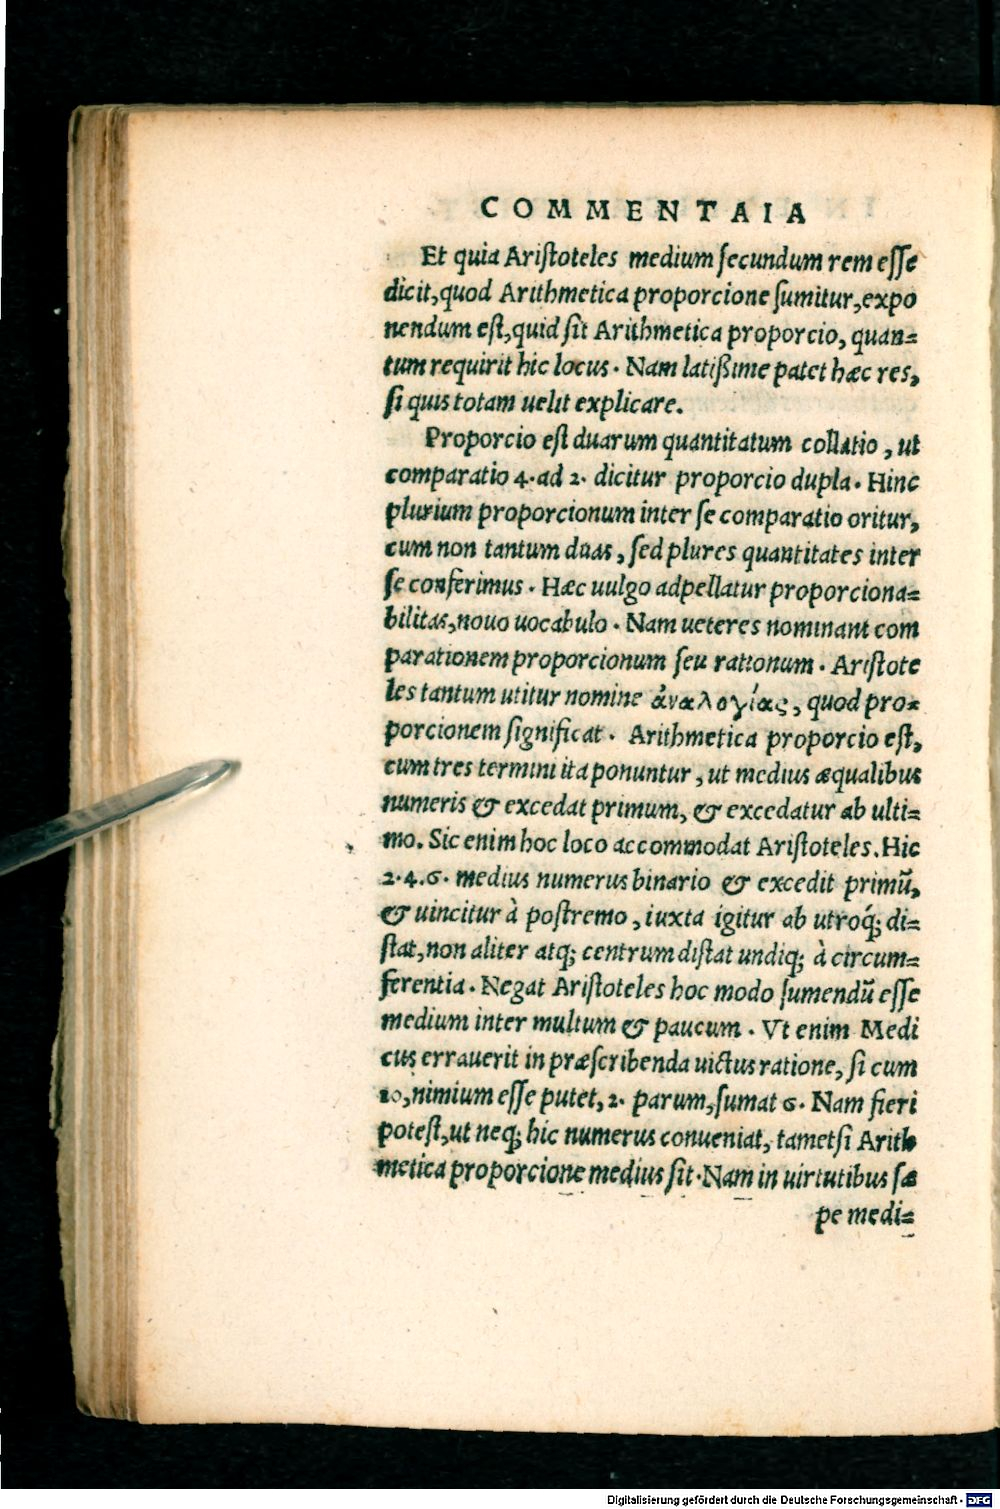 COMMENTAIA
Et quia Aristoteles medium secundum rem esse
dicit, quod Arithmetica proporcione sumitur, expo
nendum est, quid sit Arithmetica proporcio, quan=
tum requirit hic locus. Nam latißime patet hæc res,
si quis totam uelit explicare.
Proporcio est duarum quantitatum collatio, ut
comparatio 4. ad 2. dicitur proporcio dupla. Hinc
plurium proporcionum inter se comparatio oritur,
cum non tantum duas, sed plures quantitates inter
se conferimus. Hæc uulgo adpellatur proporciona=
bilitas, nouo uocabulo. Nam ueteres nominant com
parationem proporcionum seu rationum. Aristote
les tantum utitur nomine ἀναλογίας, quod pro=
porcionem significat. Arithmetica proporcio est,
cum tres termini ita ponuntur, ut medius æqualibus
numeris & excedat primum, & excedatur ab ulti=
mo. Sic enim hoc loco accommodat Aristoteles. Hic
2. 4. 6. medius numerus binario & excedit primũ,
& uincitur à postremo, iuxta igitur ab utroq́; di=
stat, non aliter atq; centrum distat undiq; à circum=
ferentia. Negat Aristoteles hoc modo sumendũ esse
medium inter multum & paucum. Vt enim Medi
cus errauerit in præscribenda uictus ratione, si cum
10, nimium esse putet, 2. parum, sumat 6. Nam fieri
potest, ut neq; hic numerus conueniat, tametsi Arith
metica proporcione medius sit. Nam in uirtutibus sæ
pe medi=
Digitalisierung gefördert durch die Deutsche Forschungsgemeinschaft - DFG